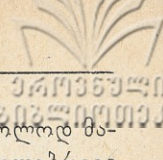 ეროვნული
ბიბლიოთეკა
ოლოდ მა-